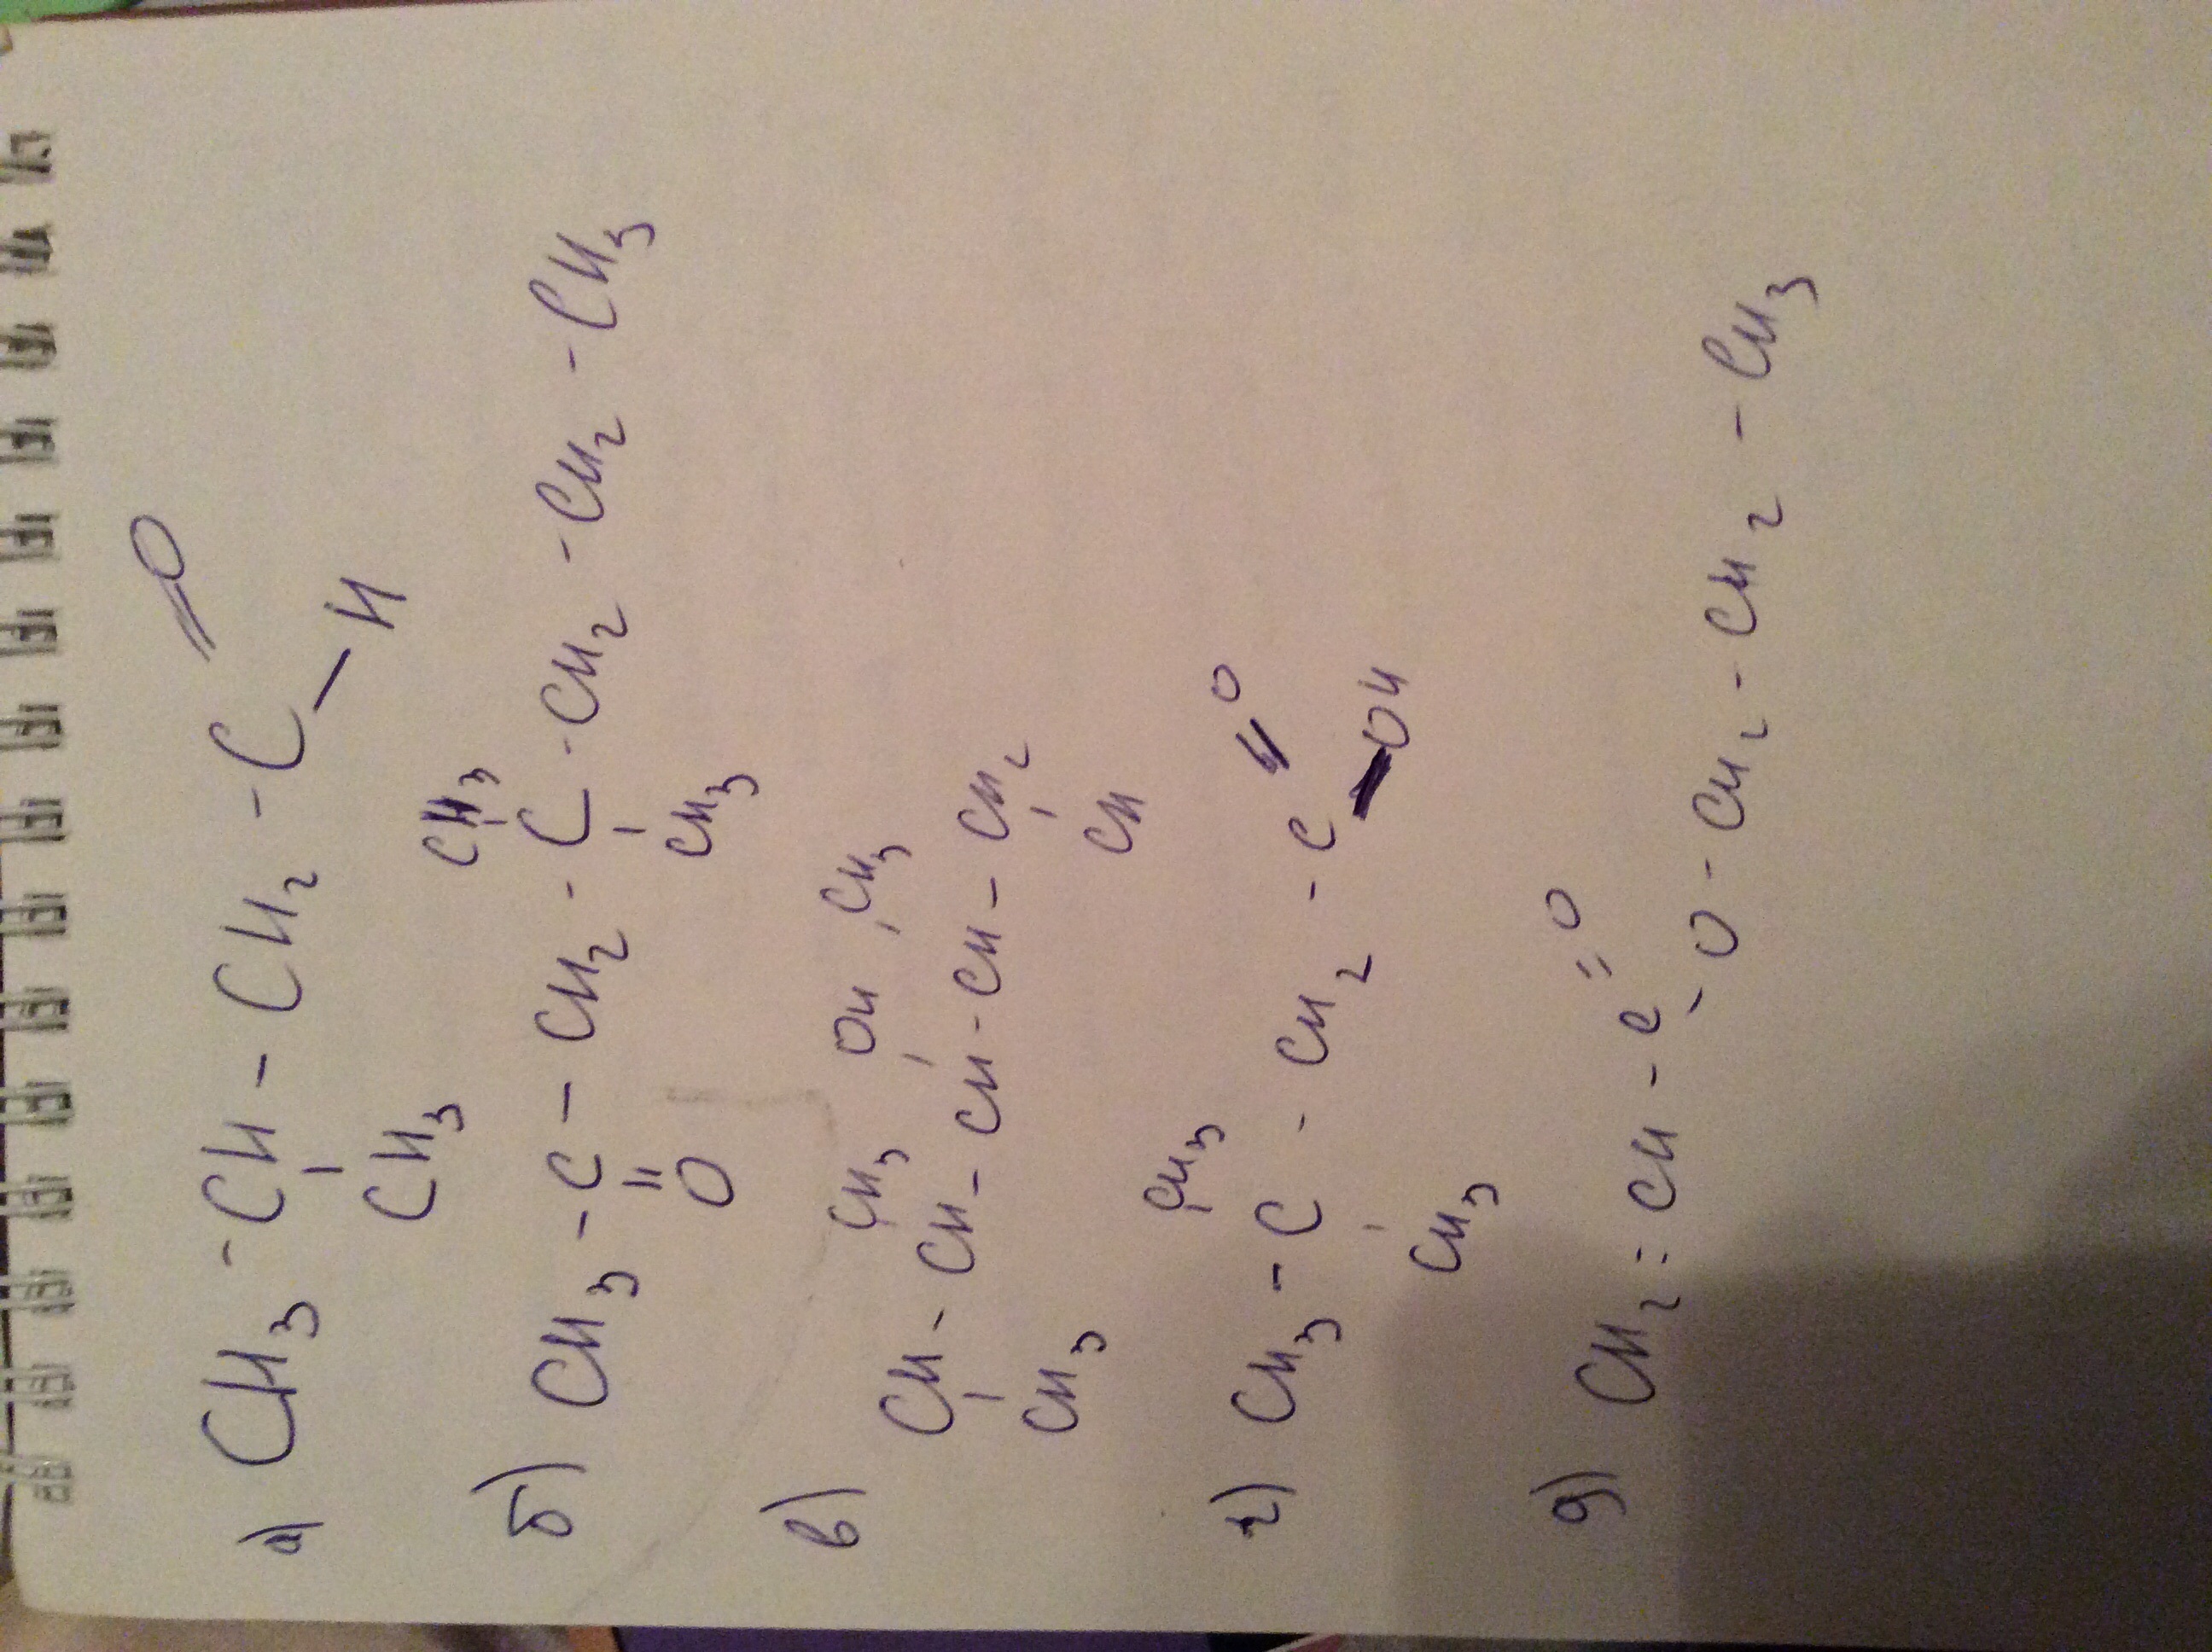 а) CH3 - CH - CH2 - C =O
- H
CH3
CH3
б) CH3 - C - CH2 - C - CH2 - CH2 - CH3
O CH3
CH3 OH CH3
в) CH - CH - CH - CH - CH2
CH3 CH
CH3
г) CH3 - C - CH2 - C =O
- OH
CH3
д) CH2 = CH - C =O
- O - CH2 - CH2 - CH3